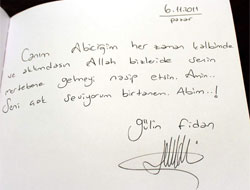 6.11.2011
pazar
Canım Abiciğim her zaman kalbimde
ve aklımdasın Allah bizleride senin
mertebene gelmeyi nasip etsin. Amin..
Seni çok seviyorum birtanem. Abim..!
Gülin Fidan